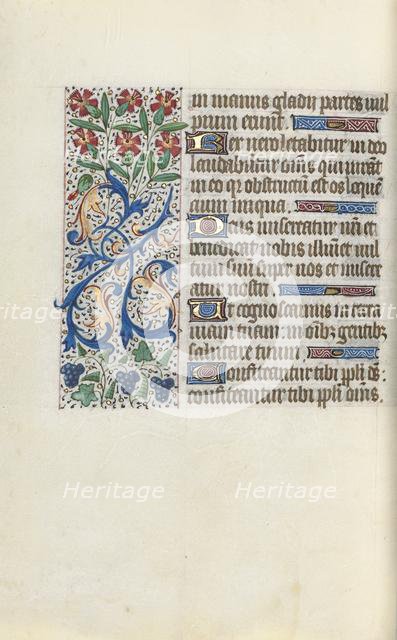 in manus gladij partes vul
pium erunt.
Rex vero letabitur in deo
laudabuntur omnes qui iurant
in eo qr obstructu est os loquen
cium iniqua.
Deus misereatur nri et
benedicat nobis illuminet vul
tum suu super nos et misere
atur nostri.
Ut cognoscamus in terra
viam tuam in omibz gentibz
salutare tuum.
Confiteantur tibi ppli ds:
confiteantur tibi ppli omes.
Heritage
Heritage
Heritage
Heritage
Heritage
Heritage